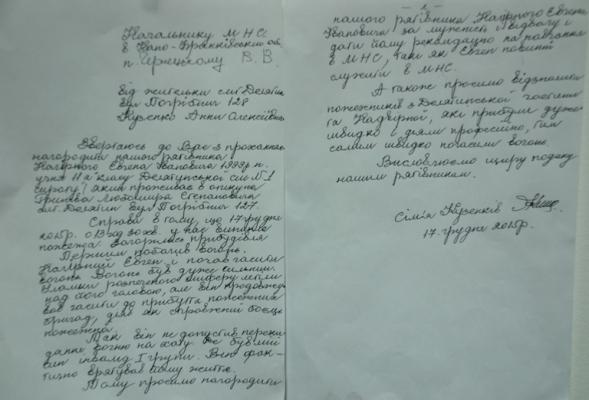 Начальнику МНС
в Івано-Франківській обл.
п. В. В.
від жительки смт Делятин
вул 128
Кузенко Анни Олексіївни
Звертаюсь до Вас з проханням
нагородити нашого рятівника
Нагірного Євгена Івановича 1999р н.
учня 11 а класу Делятинської СШ №1
сироту, який проживає в опікуна
Любомира Степановича
смт. Делятин вул 127.
Справа в тому, що 17 грудня
2015р. о 13 год 30 хв. у нас виникла
пожежа. Загорілась прибудова
Першим побачив вогонь
Нагірний Євген і почав гасити
вогонь. Вогонь був дуже сильний
розпеченого шиферу летіли
над його головою, але він продовжу-
вав гасити до прибуття пожежних
бригад, діяв як справжній боєць
пожежник.
Так він не допустив переки-
дання вогню на хату де був мій
син інвалід І групи. Він фак-
тично врятував йому життя.
Тому просимо нагородити
- 2 -
нашого рятівника Нагірного Євгена
Івановича за мужність і відвагу і
дати йому рекомендацію на навчання
в МНС, так як Євген повинт
служити в МНС.
А також просимо відзначити
пожежників з Делятинської частини
та Надвірної, які прибули дуже
швидко і діяли професійно, тим
самим швидко погасили вогонь.
Висловлюємо щиру подяку
нашим рятівникам.
Сімія Кузенків
17. грудня 2015р.